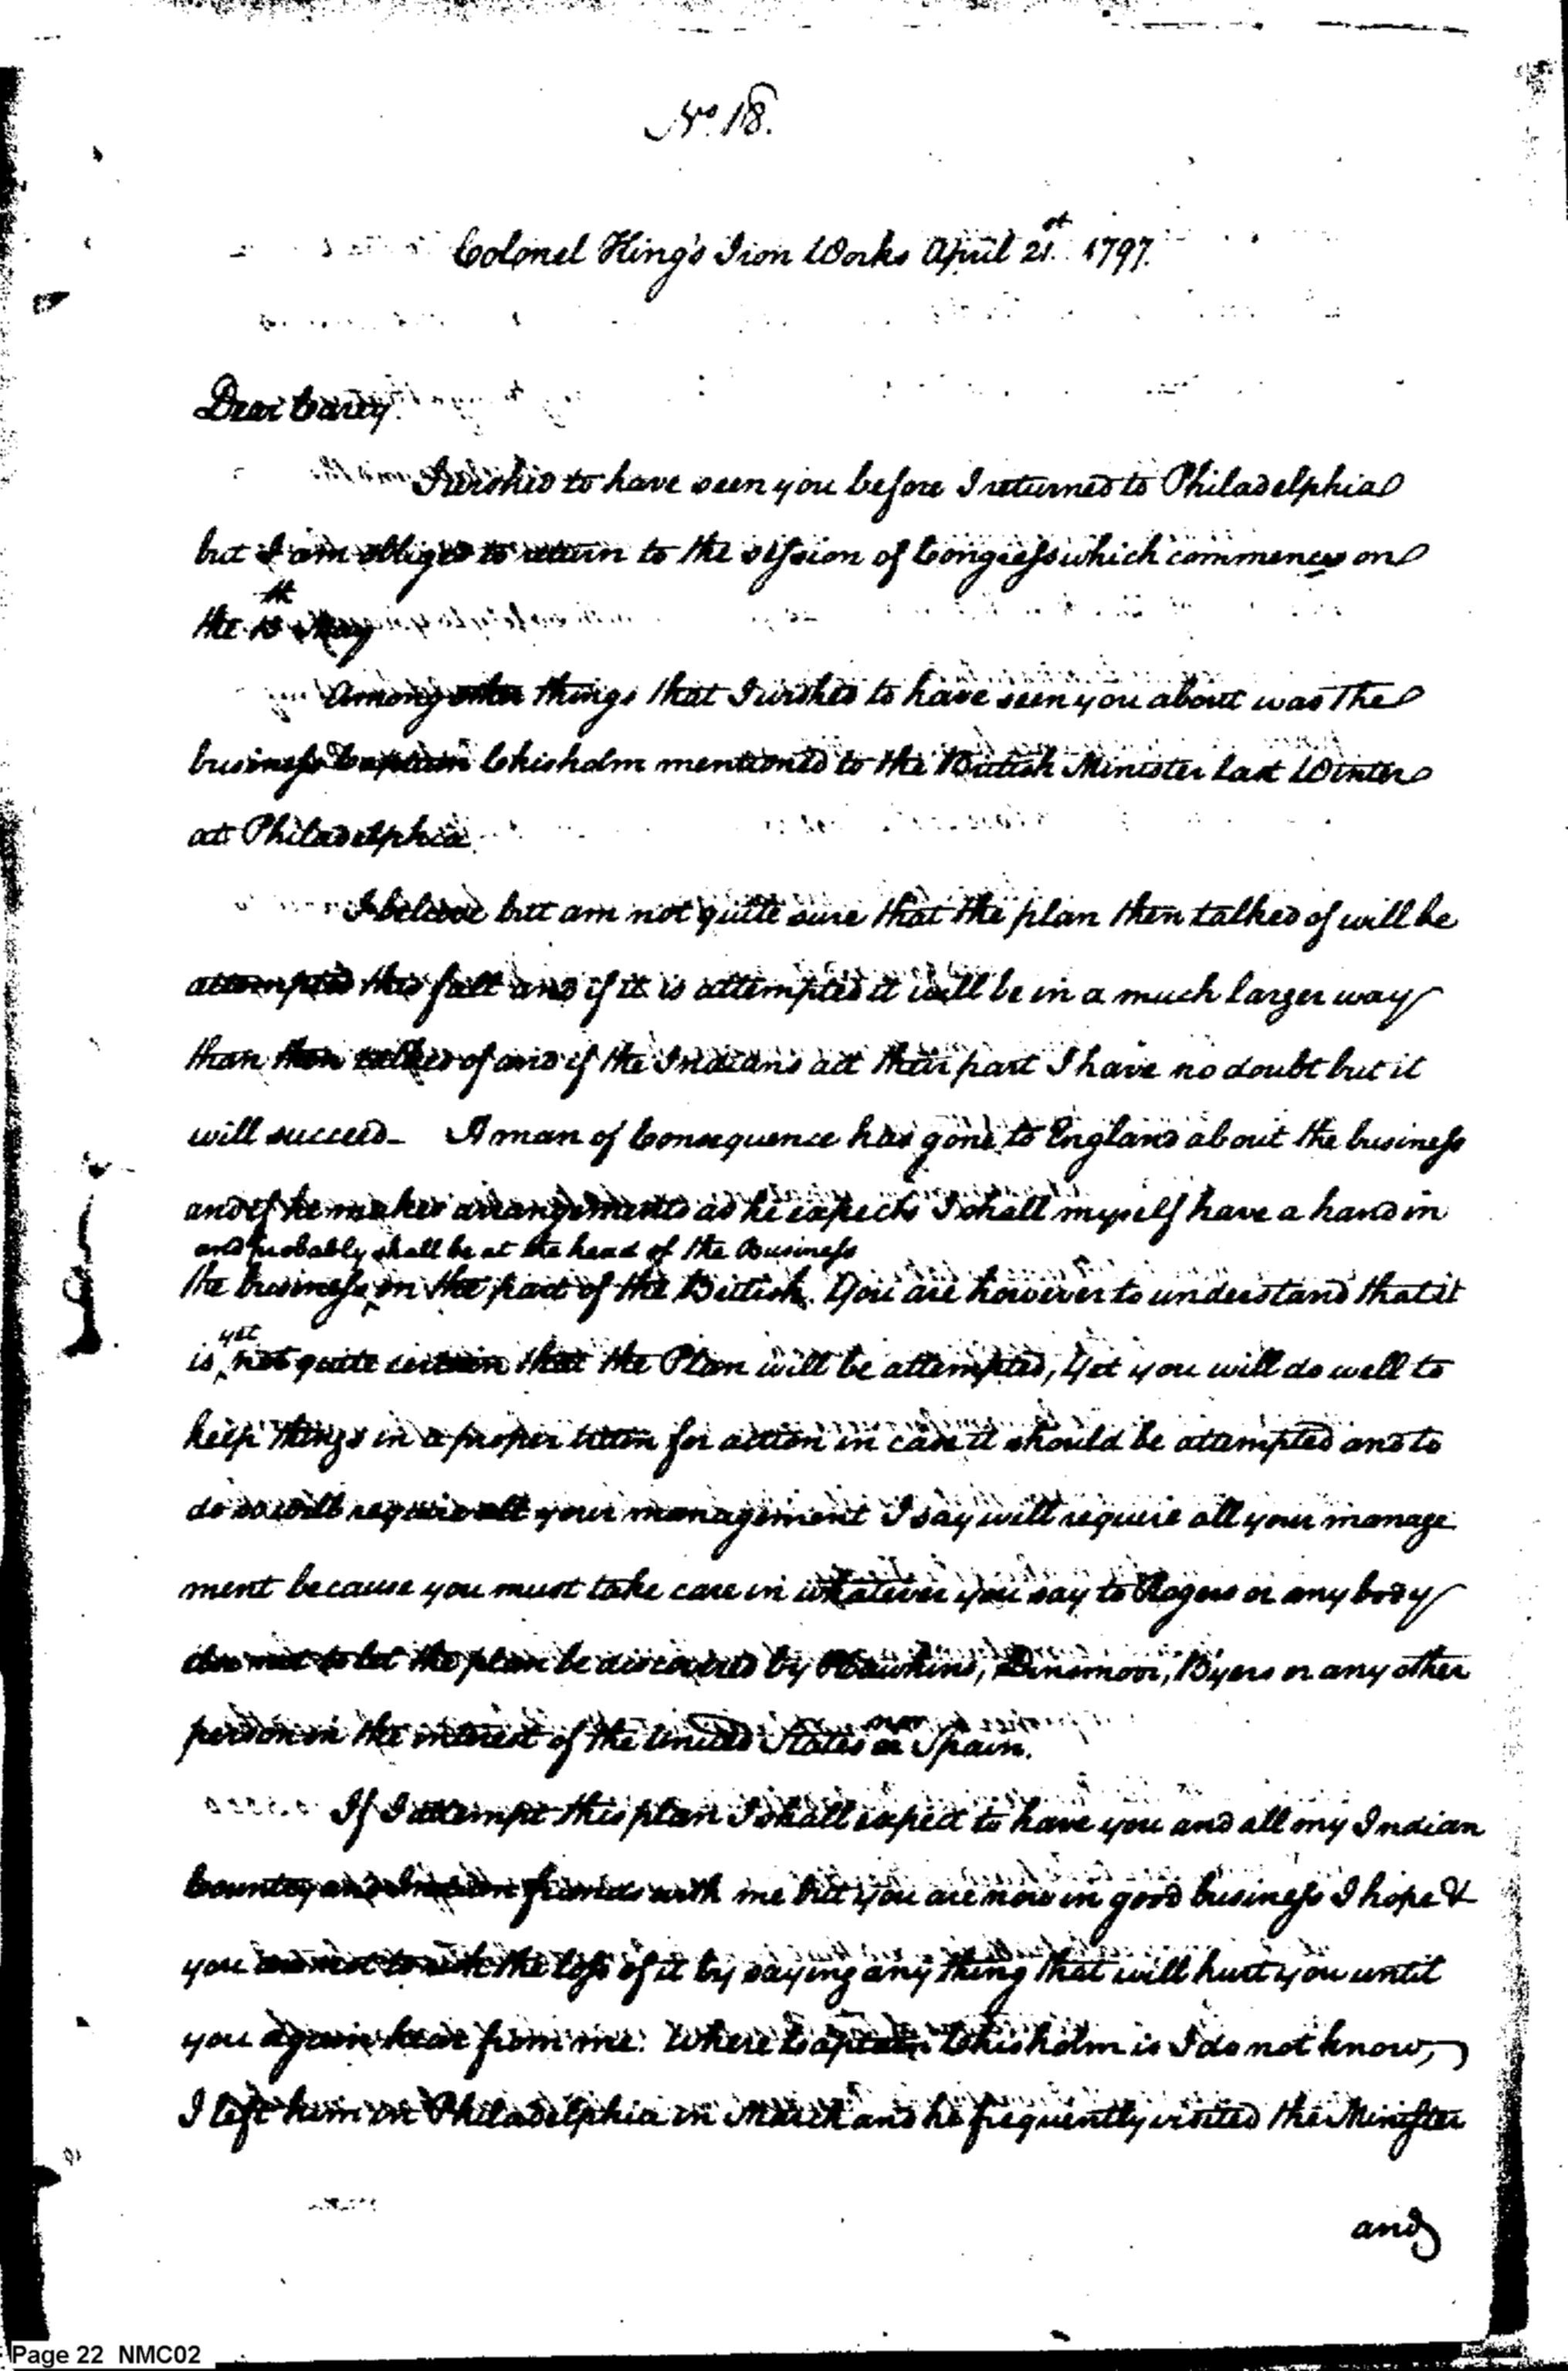 No. 18.
Colonel King's Iron Works April 21st. 1797.
Dear Carey.
I wished to have seen you before I returned to Philadelphia
but I am obliged to return to the session of Congress which commences on
the 15th May
Among other things that I wished to have seen you about was the
business Captain Chisholm mentioned to the British Minister last Winter
at Philadelphia.
I believe but am not quite sure that the plan then talked of will be
attempted this fall and if it is attempted it will be in a much larger way
than then talked of and if the Indians act their part I have no doubt but it
will succeed_ A man of Consequence has gone to England about the business
and if he makes arrangements as he expects I shall myself have a hand in
and probably shall be at the head of the Business
the business, on the part of the British. You are however to understand that it
yet
is not quite certain that the Plan will be attempted, Yet you will do well to
keep things in a proper train for action in case it should be attempted and to
do so will require all your management I say will require all your manage
ment because you must take care in whatever you say to Rogers or any body
else not to let the plan be discovered by Hawkins, Dinsmoor, Byers or any other
person in the interest of the United States nor Spain.
If I attempt this plan I shall expect to have you and all my Indian
Country and Indian friends with me but you are now in good business I hope &
you are not to risk the loss of it by saying any thing that will hurt you until
you again hear from me. Where Captain Chisholm is I do not know,
I left him in Philadelphia in March and he frequently visited the Minister
and
Page 22 NMC02